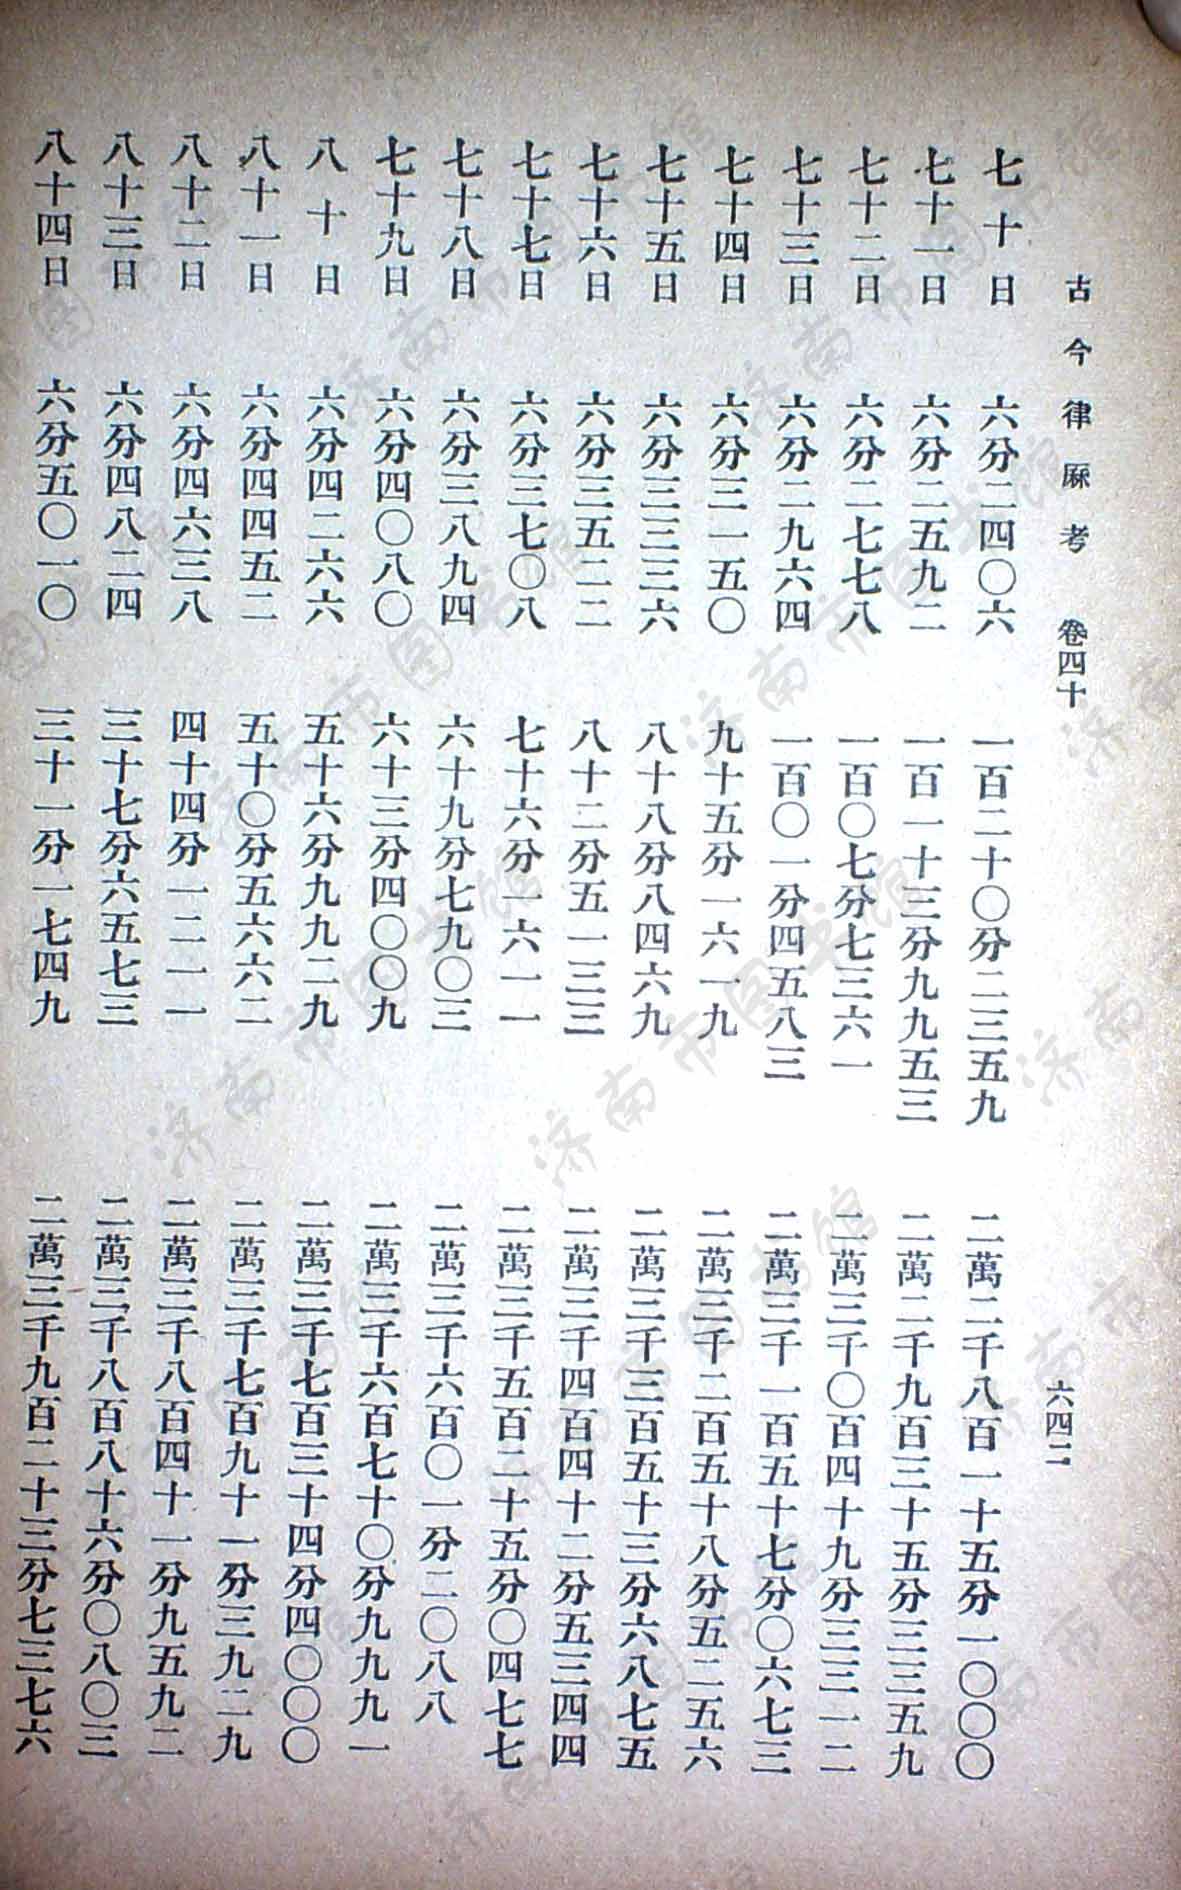 古今律厤考 卷四十 六四二
七十日 六分二四〇六 一百二十〇分二三五九 二萬二千八百一十五分一〇〇〇
七十一日 六分二五九二 一百一十三分九九五三 二萬二千九百三十五分三三五九
七十二日 六分二七七八 一百〇七分七三六一 二萬三千〇百四十九分三三一二
七十三日 六分二九六四 一百〇一分四五八三 二萬三千一百五十七分〇六七三
七十四日 六分三一五〇 九十五分一六一九 二萬三千二百五十八分五二五六
七十五日 六分三三三六 八十八分八四六九 二萬三千三百五十三分六八七五
七十六日 六分三五二二 八十二分五一三三 二萬三千四百四十二分五三四四
七十七日 六分三七〇八 七十六分一六一一 二萬三千五百二十五分〇四七七
七十八日 六分三八九四 六十九分七九〇三 二萬三千六百〇一分二〇八八
七十九日 六分四〇八〇 六十三分四〇〇九 二萬三千六百七十〇分九九九一
八十日 六分四二六六 五十六分九九二九 二萬三千七百三十四分四〇〇〇
八十一日 六分四四五二 五十〇分五六六二 二萬三千七百九十一分三九二九
八十二日 六分四六三八 四十四分一二一一 二萬三千八百四十一分九五九二
八十三日 六分四八二四 三十七分六五七三 二萬三千八百八十六分〇八〇三
八十四日 六分五〇一〇 三十一分一七四九 二萬三千九百二十三分七三七六